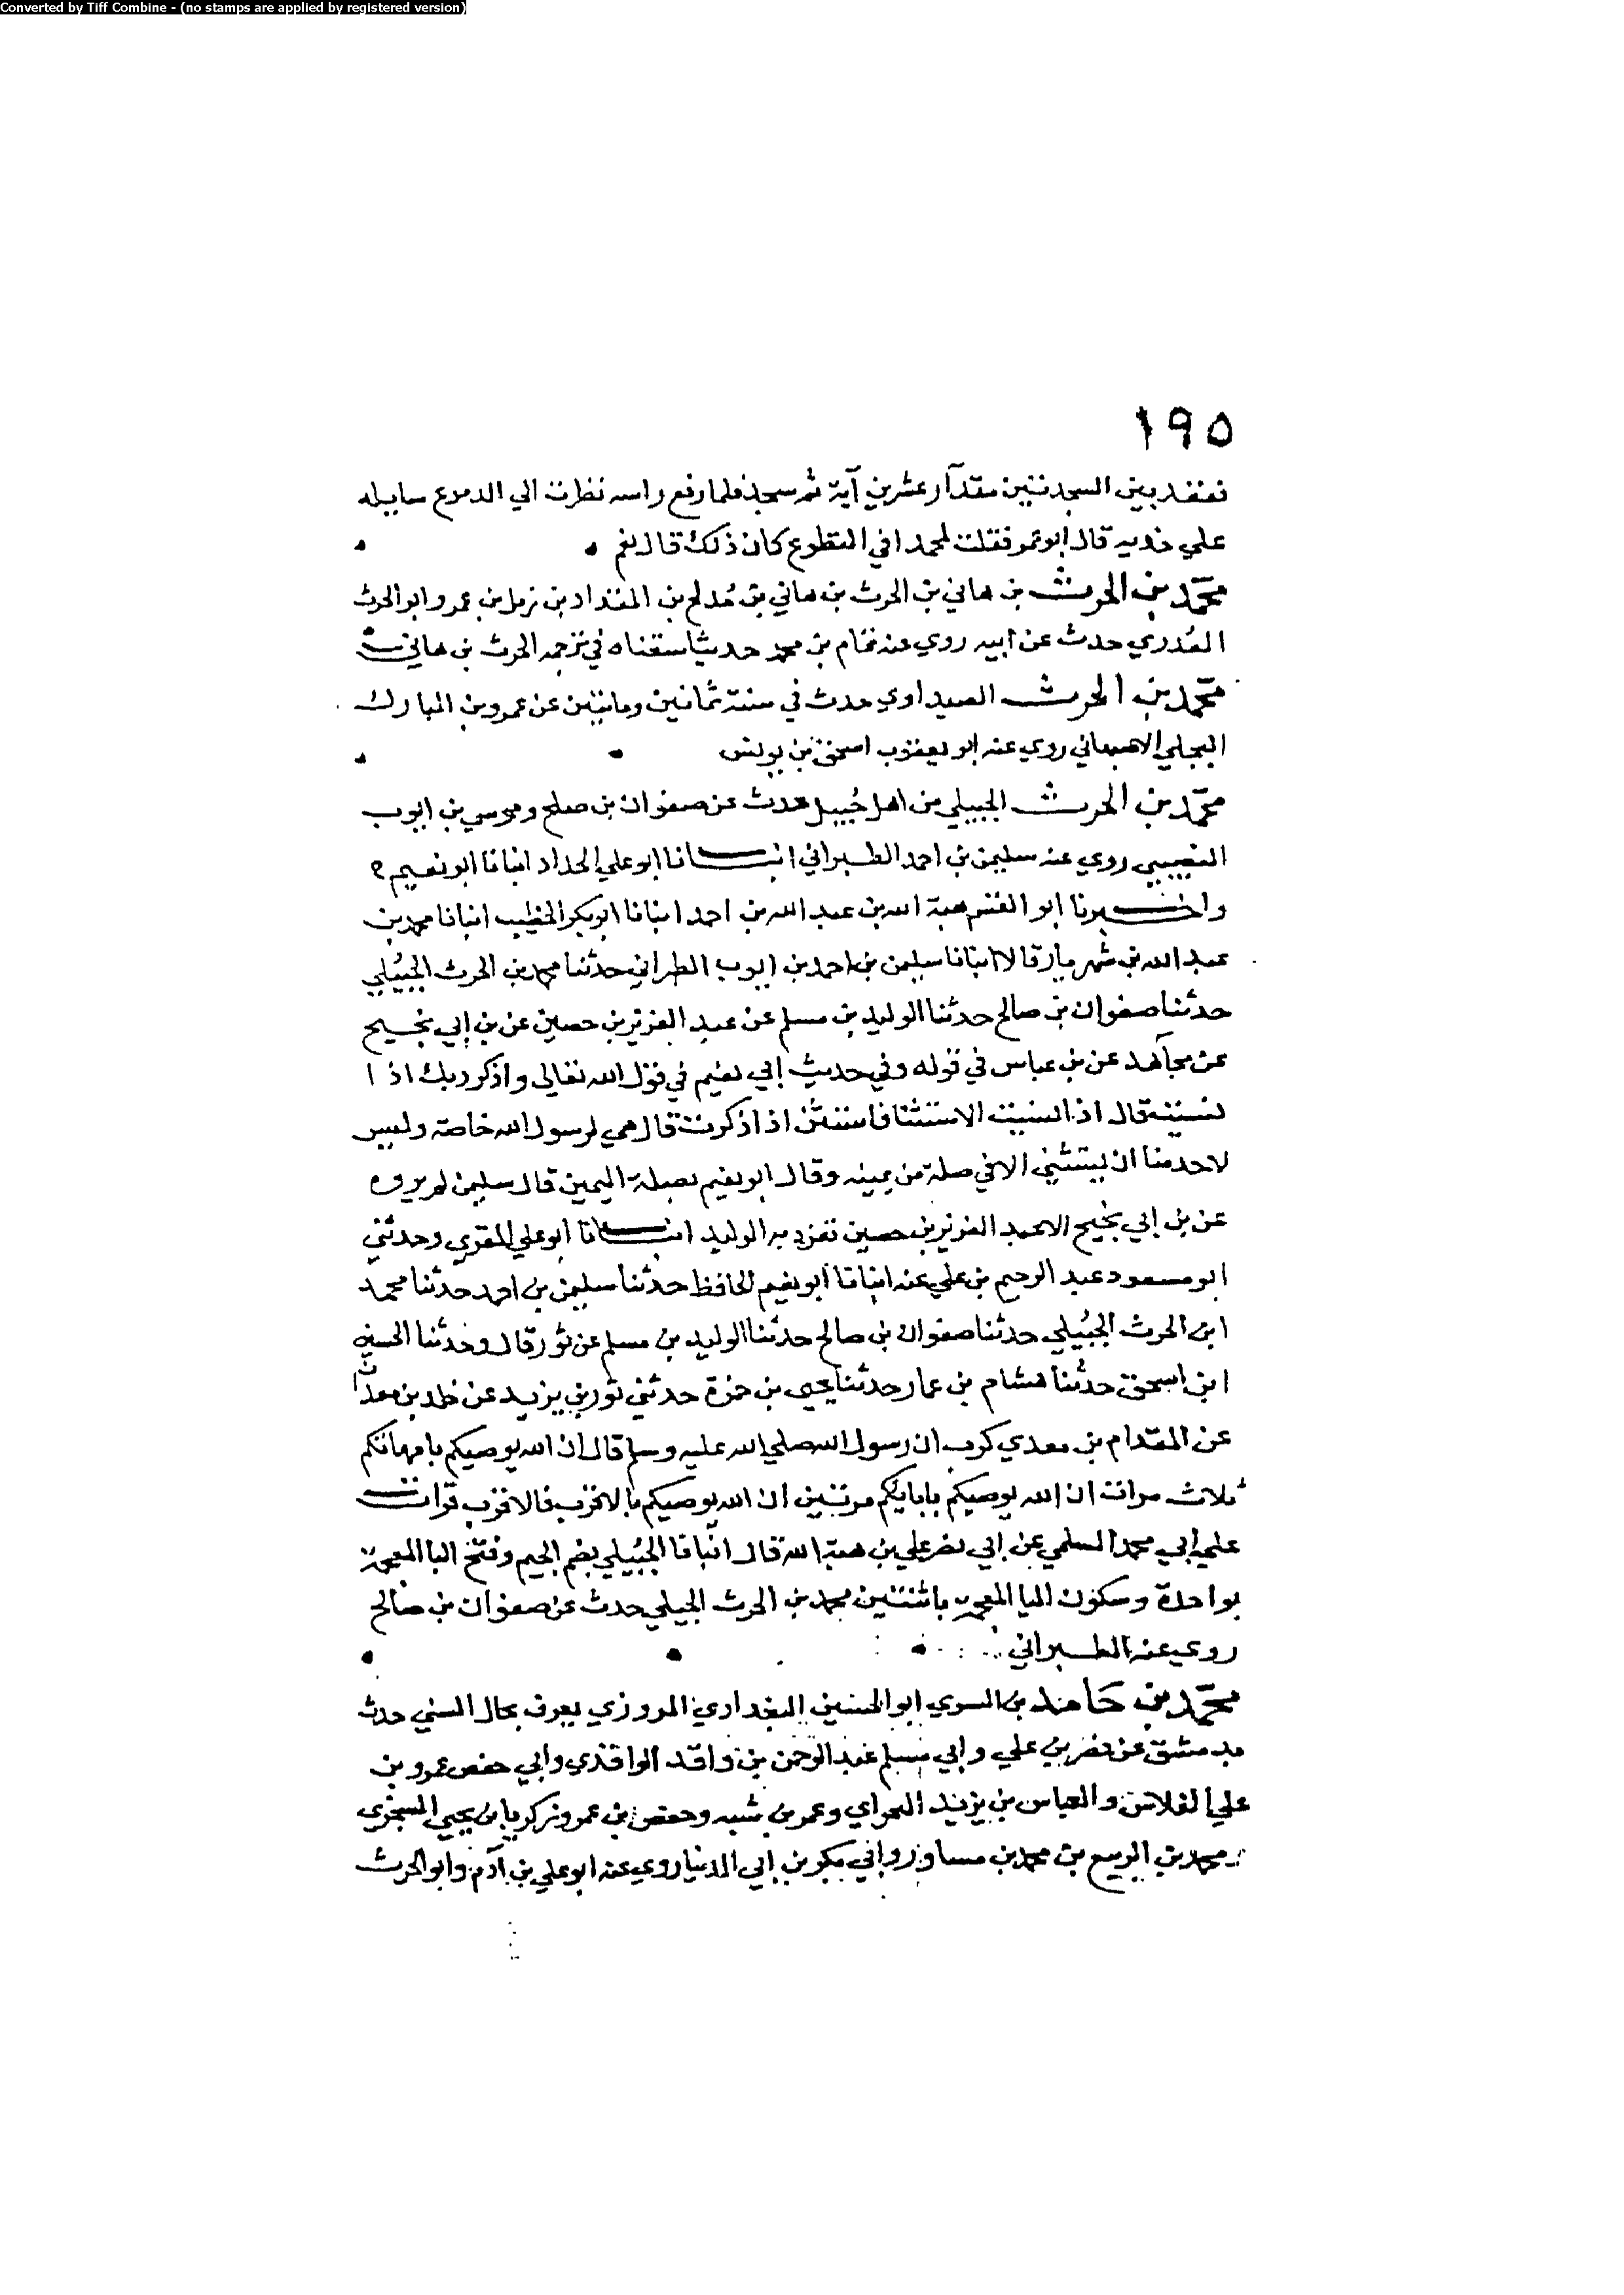 Converted by Tiff Combine - (no stamps are applied by registered version)
١٩٥
فقعد بين السجدتين مقدآر عشرين آية ثم سجد فلما رفع راسه نظرت الي الدموع سايله
علي خديه قال ابو عمر فقلت لمحمد افي التطوع كان ذلك قال نعم
محمد بن الحرث بن هاني بن الحرث بن هاني بن مُدلج بن المقداد بن زمل بن عمرو ابو الحرث
العُذري حدث عن ابيه روي عنه تمام بن محمد حديثا سقناه في ترجمه الحرث بن هاني
محمد بن الحرث الصيداوي حدث في سنة ثمانين ومايتين عن عمرو بن المبارك
البجلي الاصبهاني روي عنه ابو يعقوب اسحق بن يونس
محمد بن الحرث الجبيلي من اهل جُبيل حدث عن صفوان بن صلح وموسي بن ايوب
النصيبي روي عنه سليمن بن احمد الطبراني انبانا ابو علي الحداد انبانا ابو نعيم ح
واخبرنا ابو القسم هبة الله بن عبد الله بن احمد انبانا ابو بكر الخطيب انبانا محمد بن
عبد الله بن شهريار قالا انبانا سليمن بن احمد بن ايوب الطبراني حدثنا محمد بن الحرث الجُبيلي
حدثنا صفوان بن صالح حدثنا الوليد بن مسلم عن عبد العزيز بن حصين عن بن ابي نجيح
عن مجاهد عن بن عباس في قوله وفي حديث ابي نعيم في قول الله تعالي واذكر ربك اذا
نسيت قال اذا نسيت الاستثنا فاستثن اذا ذكرت قال هي لرسول الله خاصة وليس
لاحد منا ان يستثني الا في صلة من يمينه وقال ابو نعيم بصلة اليمين قال سليمن لم يروه
عن بن ابي نجيح الا عبد العزيز بن حصين تفرد به الوليد انبانا ابو علي المقري وحدثني
ابو مسعود عبد الرحيم بن علي عنه انبانا ابو نعيم الحافظ حدثنا سليمن بن احمد حدثنا محمد
ابن الحرث الجُبيلي حدثنا صفوان بن صالح حدثنا الوليد بن مسلم عن ثور قال وحدثنا الحسين
ابن اسحق حدثنا هشام بن عمار حدثنا يحيي بن حمزة حدثني ثور بن يزيد عن خلد بن معدان
عن المقدام بن معدي كرب ان رسول الله صلي الله عليه وسلم قال ان الله يوصيكم بامهاتكم
ثلاث مرات ان الله يوصيكم بابايكم مرتين ان الله يوصيكم بالاقرب فالاقرب قرات
علي ابي محمد السلمي عن ابي نصر علي بن هبة الله قال انبانا الجُبيلي بضم الجيم وفتح البا المعجمة
بواحدة وسكون اليا المعجمة باثنتين محمد بن الحرث الجبيلي حدث عن صفوان بن صالح
روي عنه الطبراني
محمد بن حامد بن السري ابو الحسين البغدادي المروزي يعرف بخال السني حدث
بدمشق عن نصر بن علي وابي مسلم عبد الرحمن بن واقد الواقدي وابي حفص عمرو بن
علي الفلاس والعباس بن يزيد البحراي وعمر بن شبه وحفص بن عمر وزكريا بن يحيي السجزي
ومحمد بن الربيع بن محمد بن مساور وابي بكر بن ابي الدنيا روي عنه ابو علي بن آدم وابو الحرث